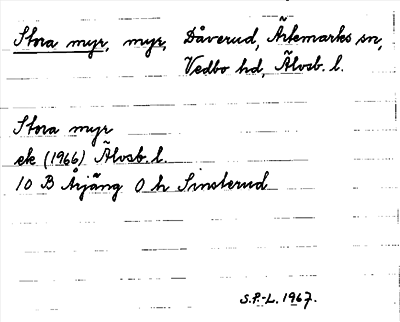 Stora myr, myr, Dåverud, Ärtemarks sn,
Vedbo hd, Älvsb. l.
Stora myr
ek (1966) Älvsb. l.
10 B Årjäng 0 h Sinsterud
S.P.-L. 1967.